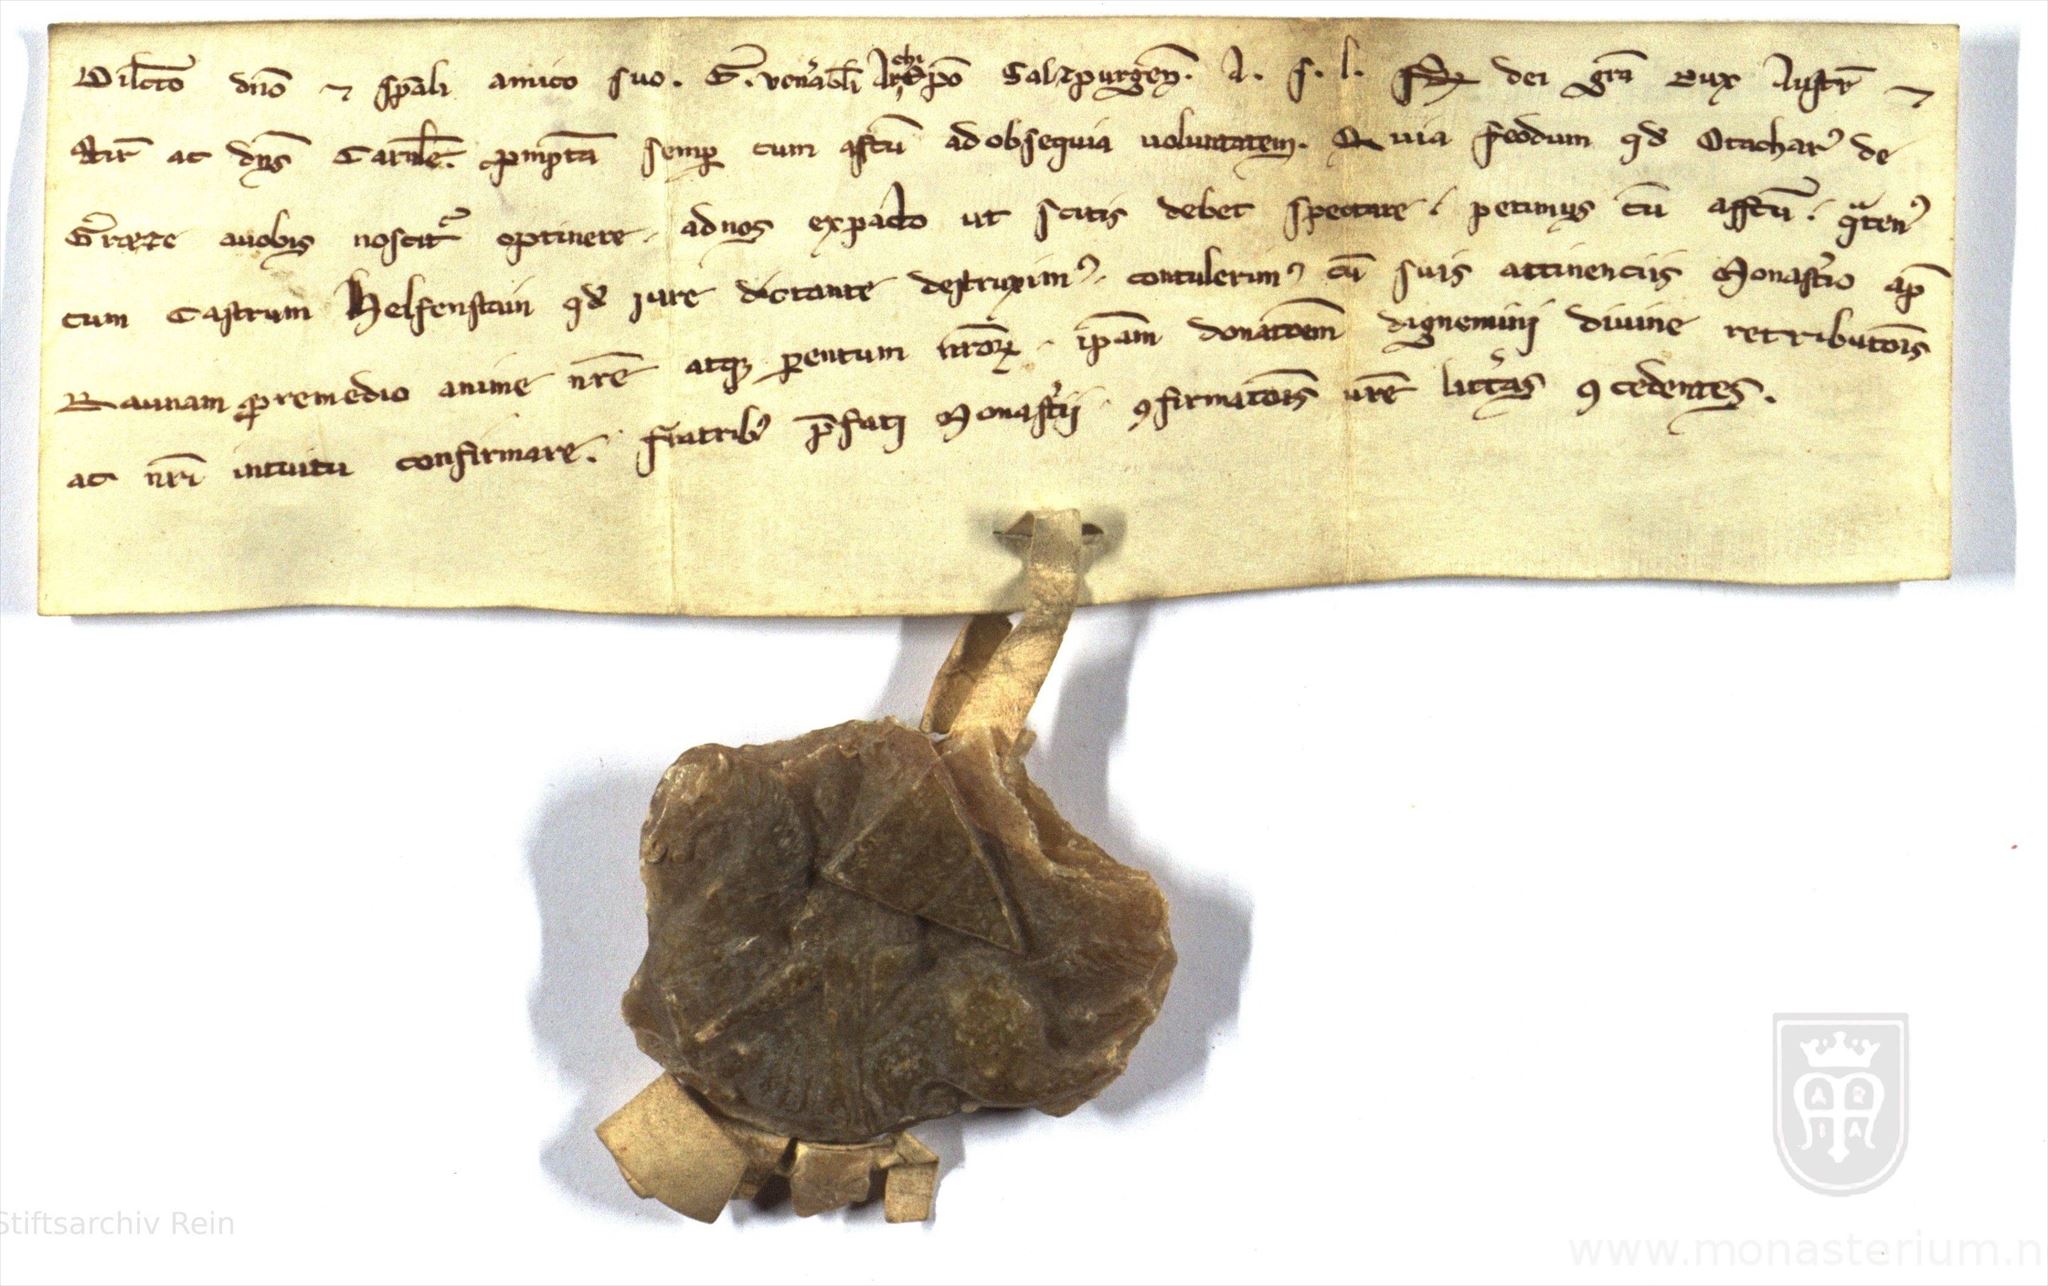 Dilc̄to dn̄o ⁊ sp̄ali amico suo. E. ven̓abl̄i Archiep̄o Salzpurgen̄. A. S. l. fr̄ dei gr̄a Dux Austr̄ ⁊
Stir̄ ac dn̄s Carniole. p̄mptā semp̱ cum affcū ad obsequia uoluntatem. Quia feodum qd̄ Otachar᾿ de
Gręze auobis noscit᾿ optinere. ad nos expacto ut scitis debet spectare. petimus cū affcū. q̄ten᾿
cum Castrum Helfenstain qd̄ iure dictante destruxim᾿. contulerim᾿ cū suis attinenciis Monast̓io ap̄
Raunam ꝓremedio anime nr̄e atqꝫ parentum nr̄oꝝ. ip̄am donatōem dignemini diuine retributōis
ac nr̄i intuitu confirmare. fr̄atrib᾿ p̄fati Monast̓ii ꝯfirmatōis ur̄e litt̓as ꝯcedentes.
Stiftsarchiv Rein
www.monasterium.n